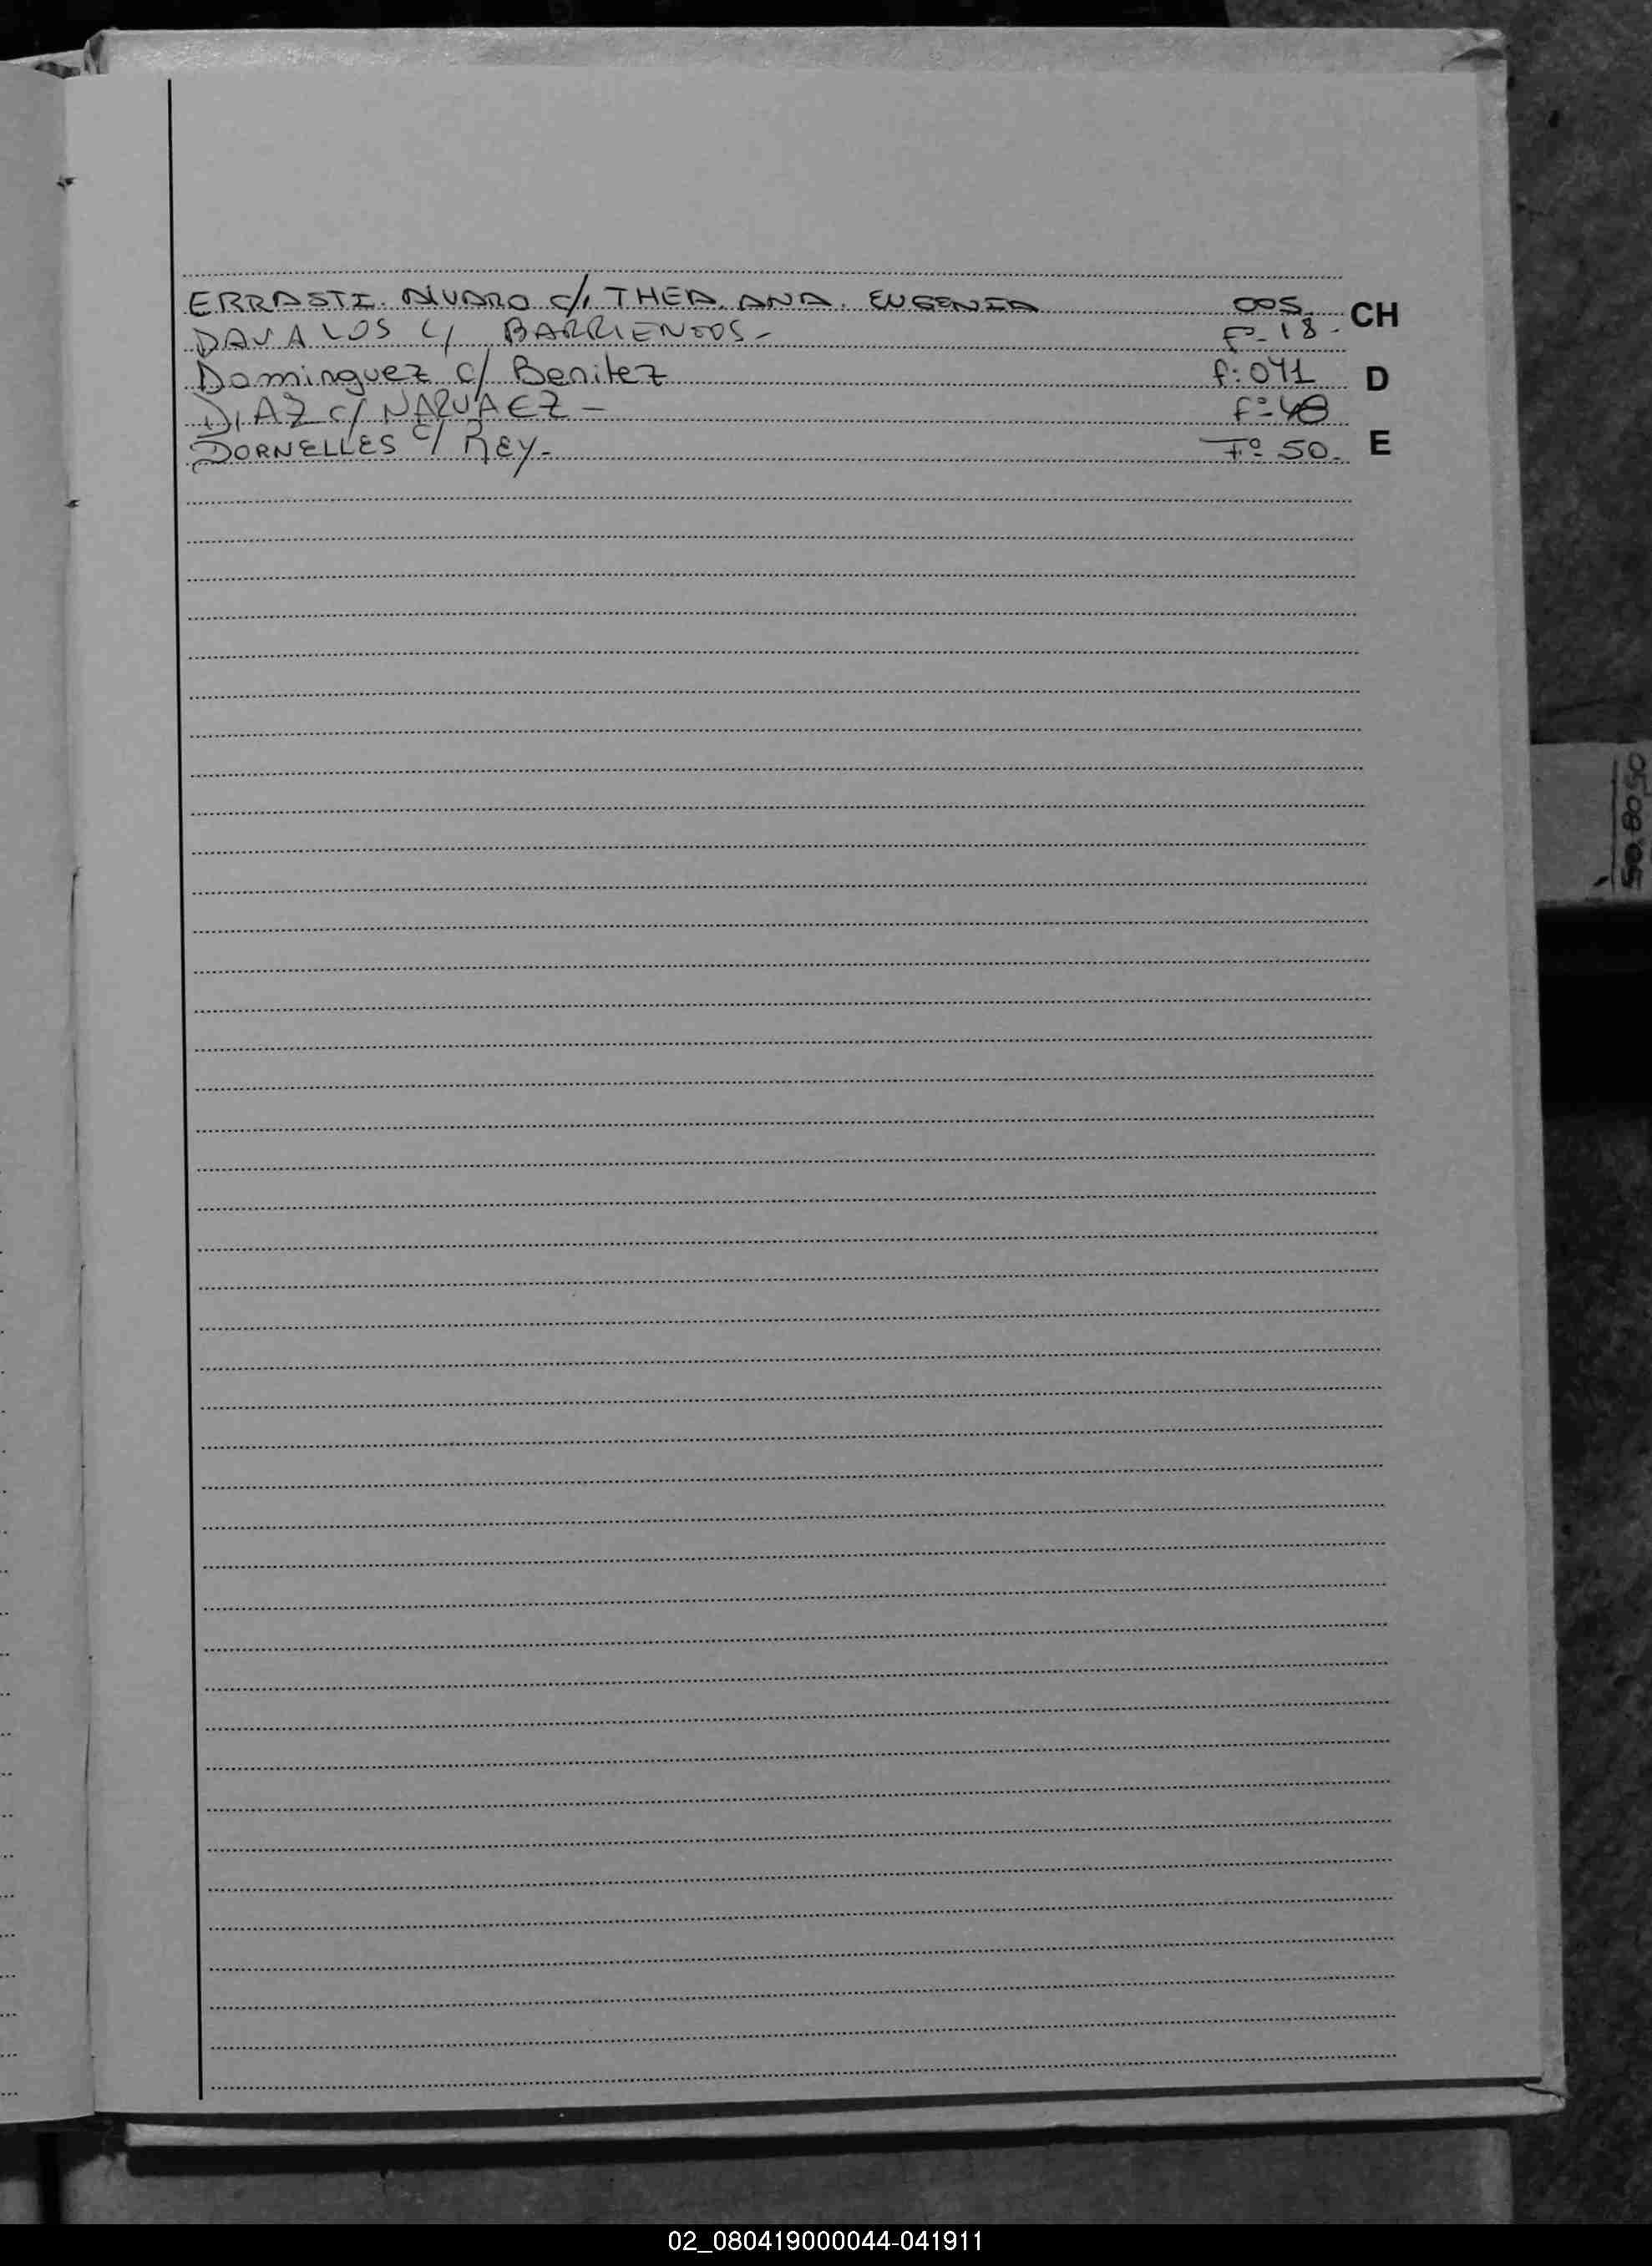 ERRASTI. ALVARO c/. THEA. ANA. EUGENIA 005. CH
DAVALOS c/ BARRIENTOS- Fº-18-
Dominguez c/ Benitez f:041 D
DIAZ c/ NARVAEZ- fº-48
DORNELLES c/ REY- Fº-50. E
02_080419000044-041911